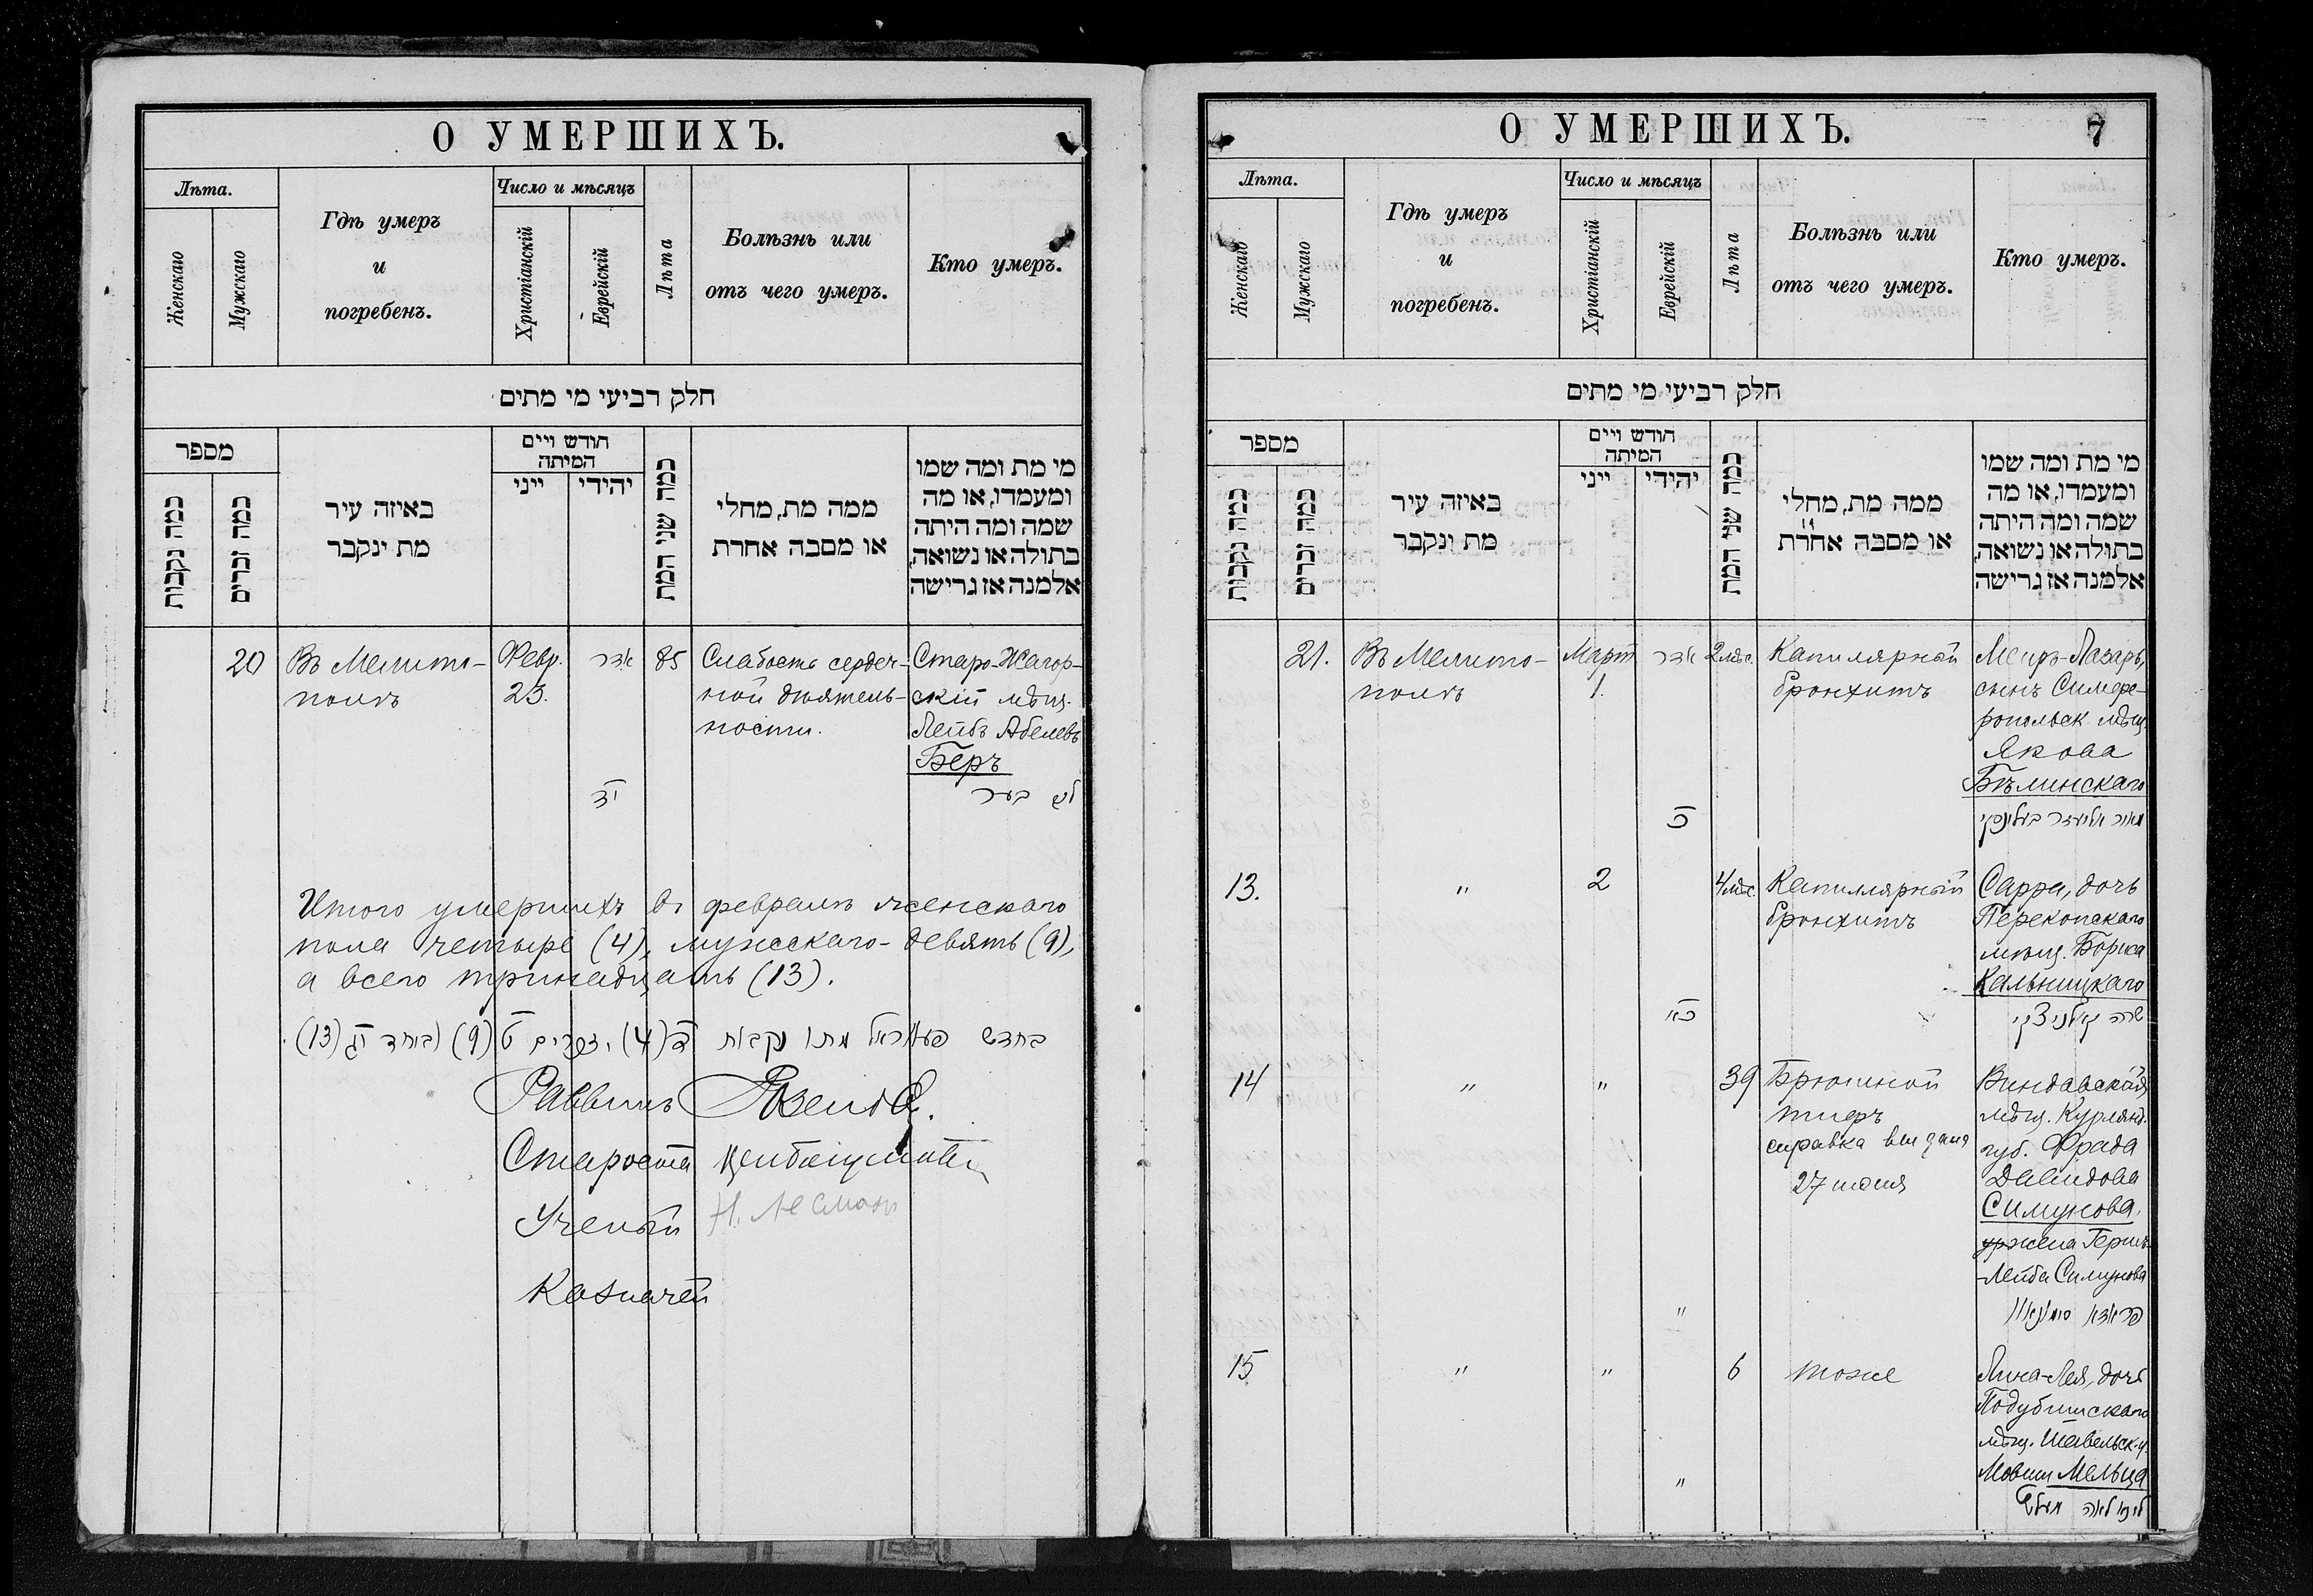 О УМЕРШИХЪ.
Лѣта.
Женскаго
Мужскаго
Гдѣ умеръ
и
погребенъ.
Число и мѣсяцъ
Христіанскій
Еврейскій
Лѣта
Болѣзнь или
отъ чего умеръ.
Кто умеръ.
חלק רביעי מי מתים
מספר
כמה נקבות
כמה זכרים
באיזה עיר
מת ינקבר
חודש ויים
המיתה
ייני
יהידי
כמה שני המת
ממה מת, מחלי
או מסבה אחרת
מי מת ומה שמו
ומעמדו, או מה
שמה ומה היתה
בתולה או נשואה,
אלמנה אז גרישה
20
Въ Мелито-
полѣ
Февр.
23.
אדר
יד
85
Слабость сердеч-
ной дѣятель-
ности.
Старо-Жагор-
скій мѣщ.
Лейбъ Абелевъ
Беръ
בער
Итого умершихъ въ февралѣ женскаго
пола четыре (4), мужскаго - девять (9),
а всего тринадцать (13).
בחדש פעווראל מתו נקבות ד (4), זכרים ט (9) וביחד יג (13).
Раввинъ
Староста
Ученый
Казначей
О УМЕРШИХЪ.
7
Лѣта.
Женскаго
Мужскаго
Гдѣ умеръ
и
погребенъ.
Число и мѣсяцъ
Христіанскій
Еврейскій
Лѣта
Болѣзнь или
отъ чего умеръ.
Кто умеръ.
חלק רביעי מי מתים
מספר
כמה נקבות
כמה זכרים
באיזה עיר
מת ונקבר
חודש ויים
המיתה
ייני
יהידי
כמה שני המת
ממה מת, מחלי
או מסבה אחרת
מי מת ומה שמו
ומעמדו, או מה
שמה ומה היתה
בתולה או נשואה,
אלמנה אז גרישה
21.
Въ Мелито-
полѣ
Март
1.
אדר
כ
2 мѣс.
Капилярный
бронхитъ
Меиръ-Лазарь,
сынъ Симфе-
ропольск мѣщ.
Якова
Бѣлинскаго
מאיר אליעזר בעלינסקי
13.
"
2
כא
4 мѣс.
Капиллярный
бронхитъ
Сарра, дочь
Перекопскаго
мѣщ. Борка
Кальницкаго
שרה קאלניצקי
14
"
"
"
39
Брюшной
тифъ
справка выдана
27 июня
Виндавская
мѣщ. Курлянд.
губ. Фрада
Давидова
Симунова,
жена Герш-
-Лейба Симунова
פראדא סימונאוו
15
"
"
"
6
тоже
Лина-Лея, дочь
Подубисскаго
мѣщ. Шавельск. у.
Мовши Мельца
לינא לאה מעלץ